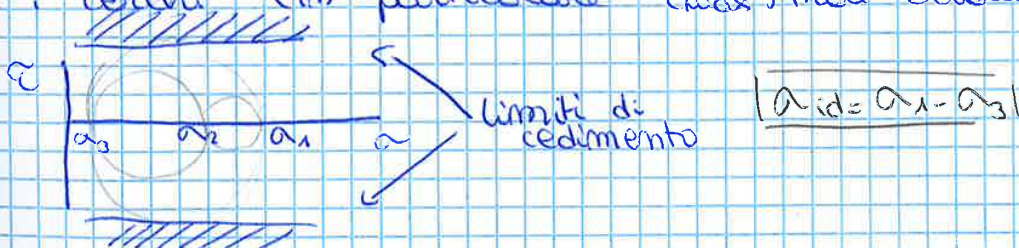 τ
σ3 σ2 σ1 σ
limiti di
cedimento
σid = σ1 - σ3